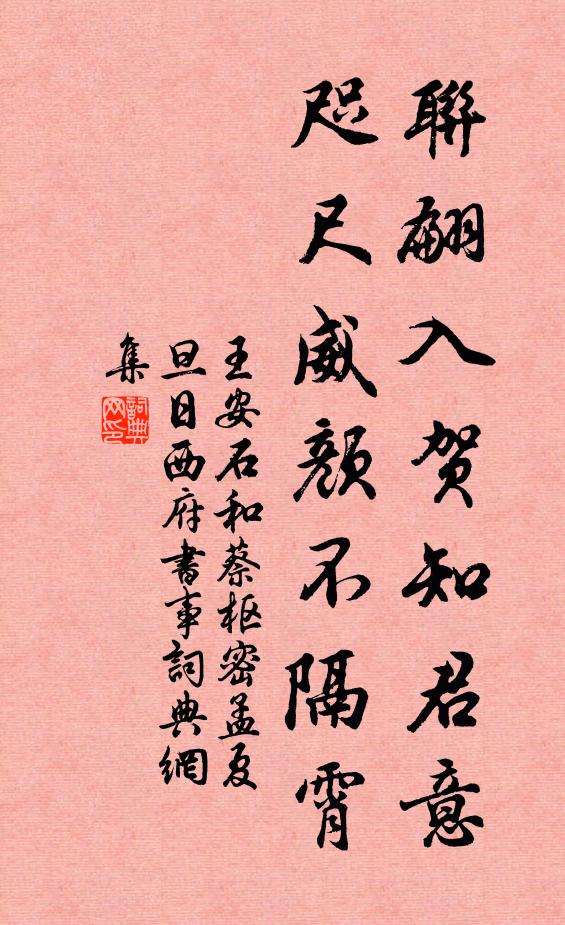 聯翩入賀知君意
咫尺威顏不隔霄
王安石和蔡枢密孟夏
旦日西府書事詞典網
集
詞典
网印